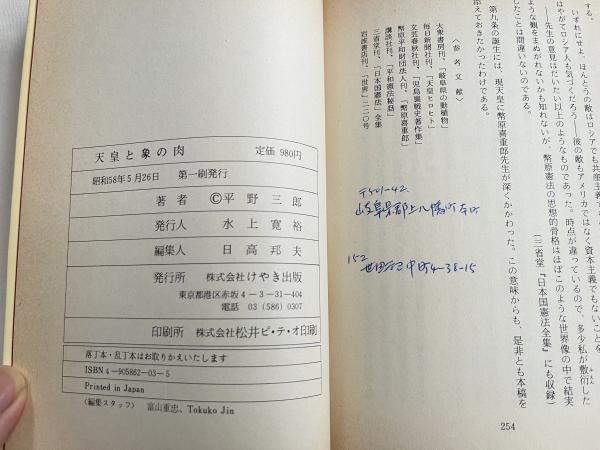 する。
いずれにせよ、ほんとうの敵はロシアでも共産主義で
はやがてロシア人も気づくだろう――彼の敵もアメリカではなく資本主義でもないことを。
――先生の意見はだいたい以上のようなものであった。時点が違っているので、多少私が敷衍した
ような観をまぬがれないかも知れないが、幣原憲法の思想的骨格はほぼこのような世界像の中で結実
したことは間違いないのである。
(三省堂『日本国憲法全集』にも収録)
第九条の誕生には、現天皇に幣原喜重郎先生が深くかかわった。この意味からも、是非とも本稿を
添えておきたかったわけである。
〈参考文献〉
大衆書房刊、「岐阜県の動植物」
毎日新聞社刊、「天皇ヒロヒト」
文芸春秋社刊、「児島襄戦史著作集」
幣原平和財団法人刊、「幣原喜重郎」
講談社刊、「平和憲法秘話」
三省堂刊、「日本国憲法」全集
岩波書店刊、「世界」二二〇号
〒501-42
岐阜県郡上八幡町本町
152
中町4-38-15
254
天皇と象の肉 定価 980円
昭和58年5月26日 第一刷発行
著者 ©平野三郎
発行人 水上寛裕
編集人 日高邦夫
発行所 株式会社けやき出版
東京都港区赤坂4-3-31-404
電話 03(586)0307
印刷所 株式会社松井ピ・テ・オ印刷
落丁本・乱丁本はお取りかえいたします
ISBN 4-905862-03-5
Printed in Japan
(編集スタッフ) 富山重忠、Tokuko Jin